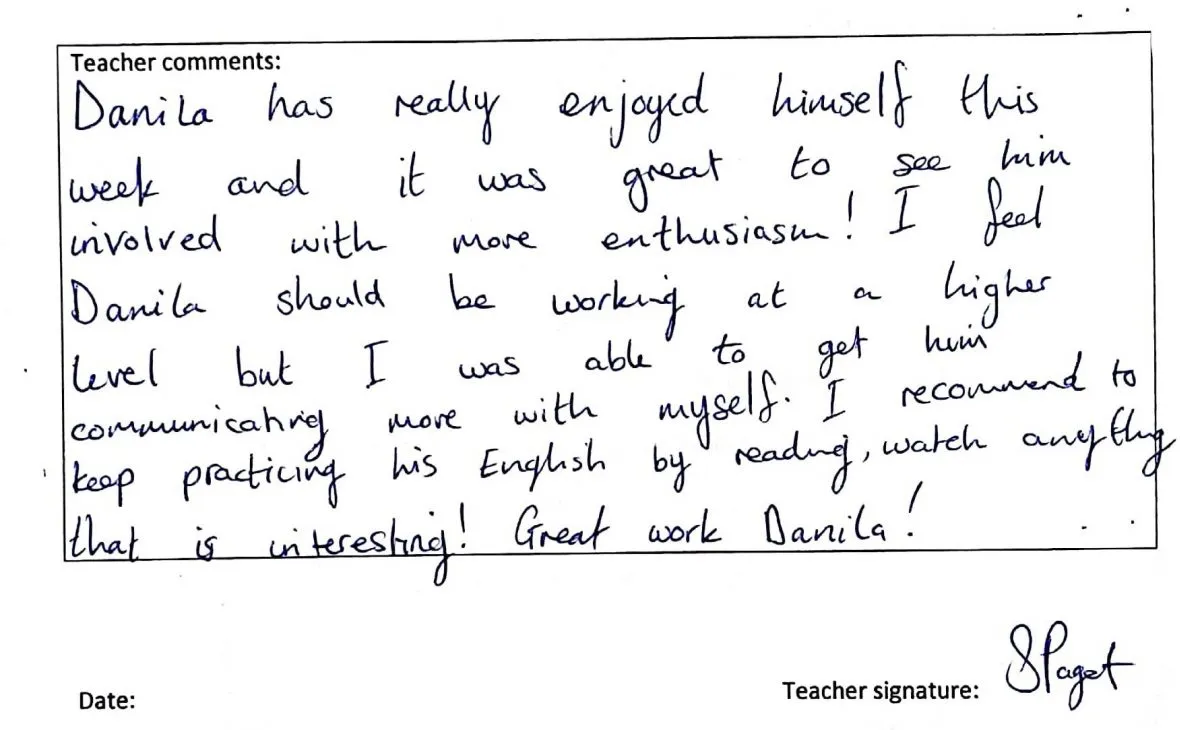 Teacher comments:
Danila has really enjoyed himself this
week and it was great to see him
involved with more enthusiasm! I feel
Danila should be working at a higher
level but I was able to get him
communicating more with myself. I recommend to
keep practicing his English by reading, watch anything
that is interesting! Great work Danila!
Date:
Teacher signature: SPaget